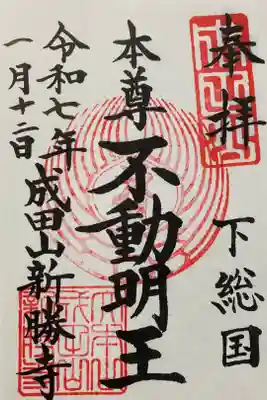 奉拝
下総国
本尊
不動明王
成田山新勝寺
令和七年
一月十二日